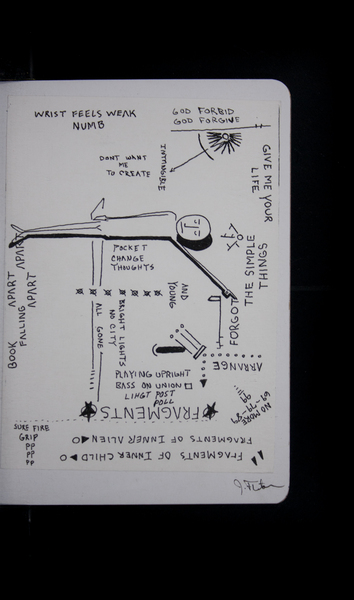 WRIST FEELS WEAK
NUMB
GOD FORBID
GOD FORGIVE
DONT WANT
ME
TO CREATE
INTANGIBLE
GIVE ME YOUR
LIFE
THE SIMPLE
THINGS
FORGOT
POCKET
CHANGE
THOUGHTS
AND
YOUNG
BRIGHT LIGHTS
NO CITY
ALL GONE
BOOK APART APART
FALLING APART
APART
ARRANGE
PLAYING UPRIGHT
BASS ON UNION
LIHGT POST
POLL
NO MORE
FRAGMENTS
FRAGMENTS OF INNER ALIEN
FRAGMENTS OF INNER CHILD
SURE FIRE
GRIP
PP
PP
PP